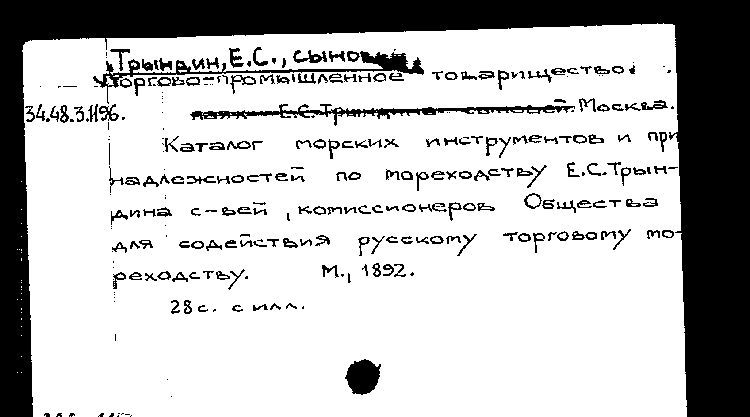 Трындин, Е.С., сынов
торгово-промышленное товарищество.
34.48.3.1196. Е.С.Трындина сыновей. Москва.
Каталог морских инструментов и при
надлежностей по мореходству Е.С.Трын-
дина с-вей, комиссионеров Общества
для содействия русскому торговому мо-
реходству. М., 1892.
28 с. с илл.